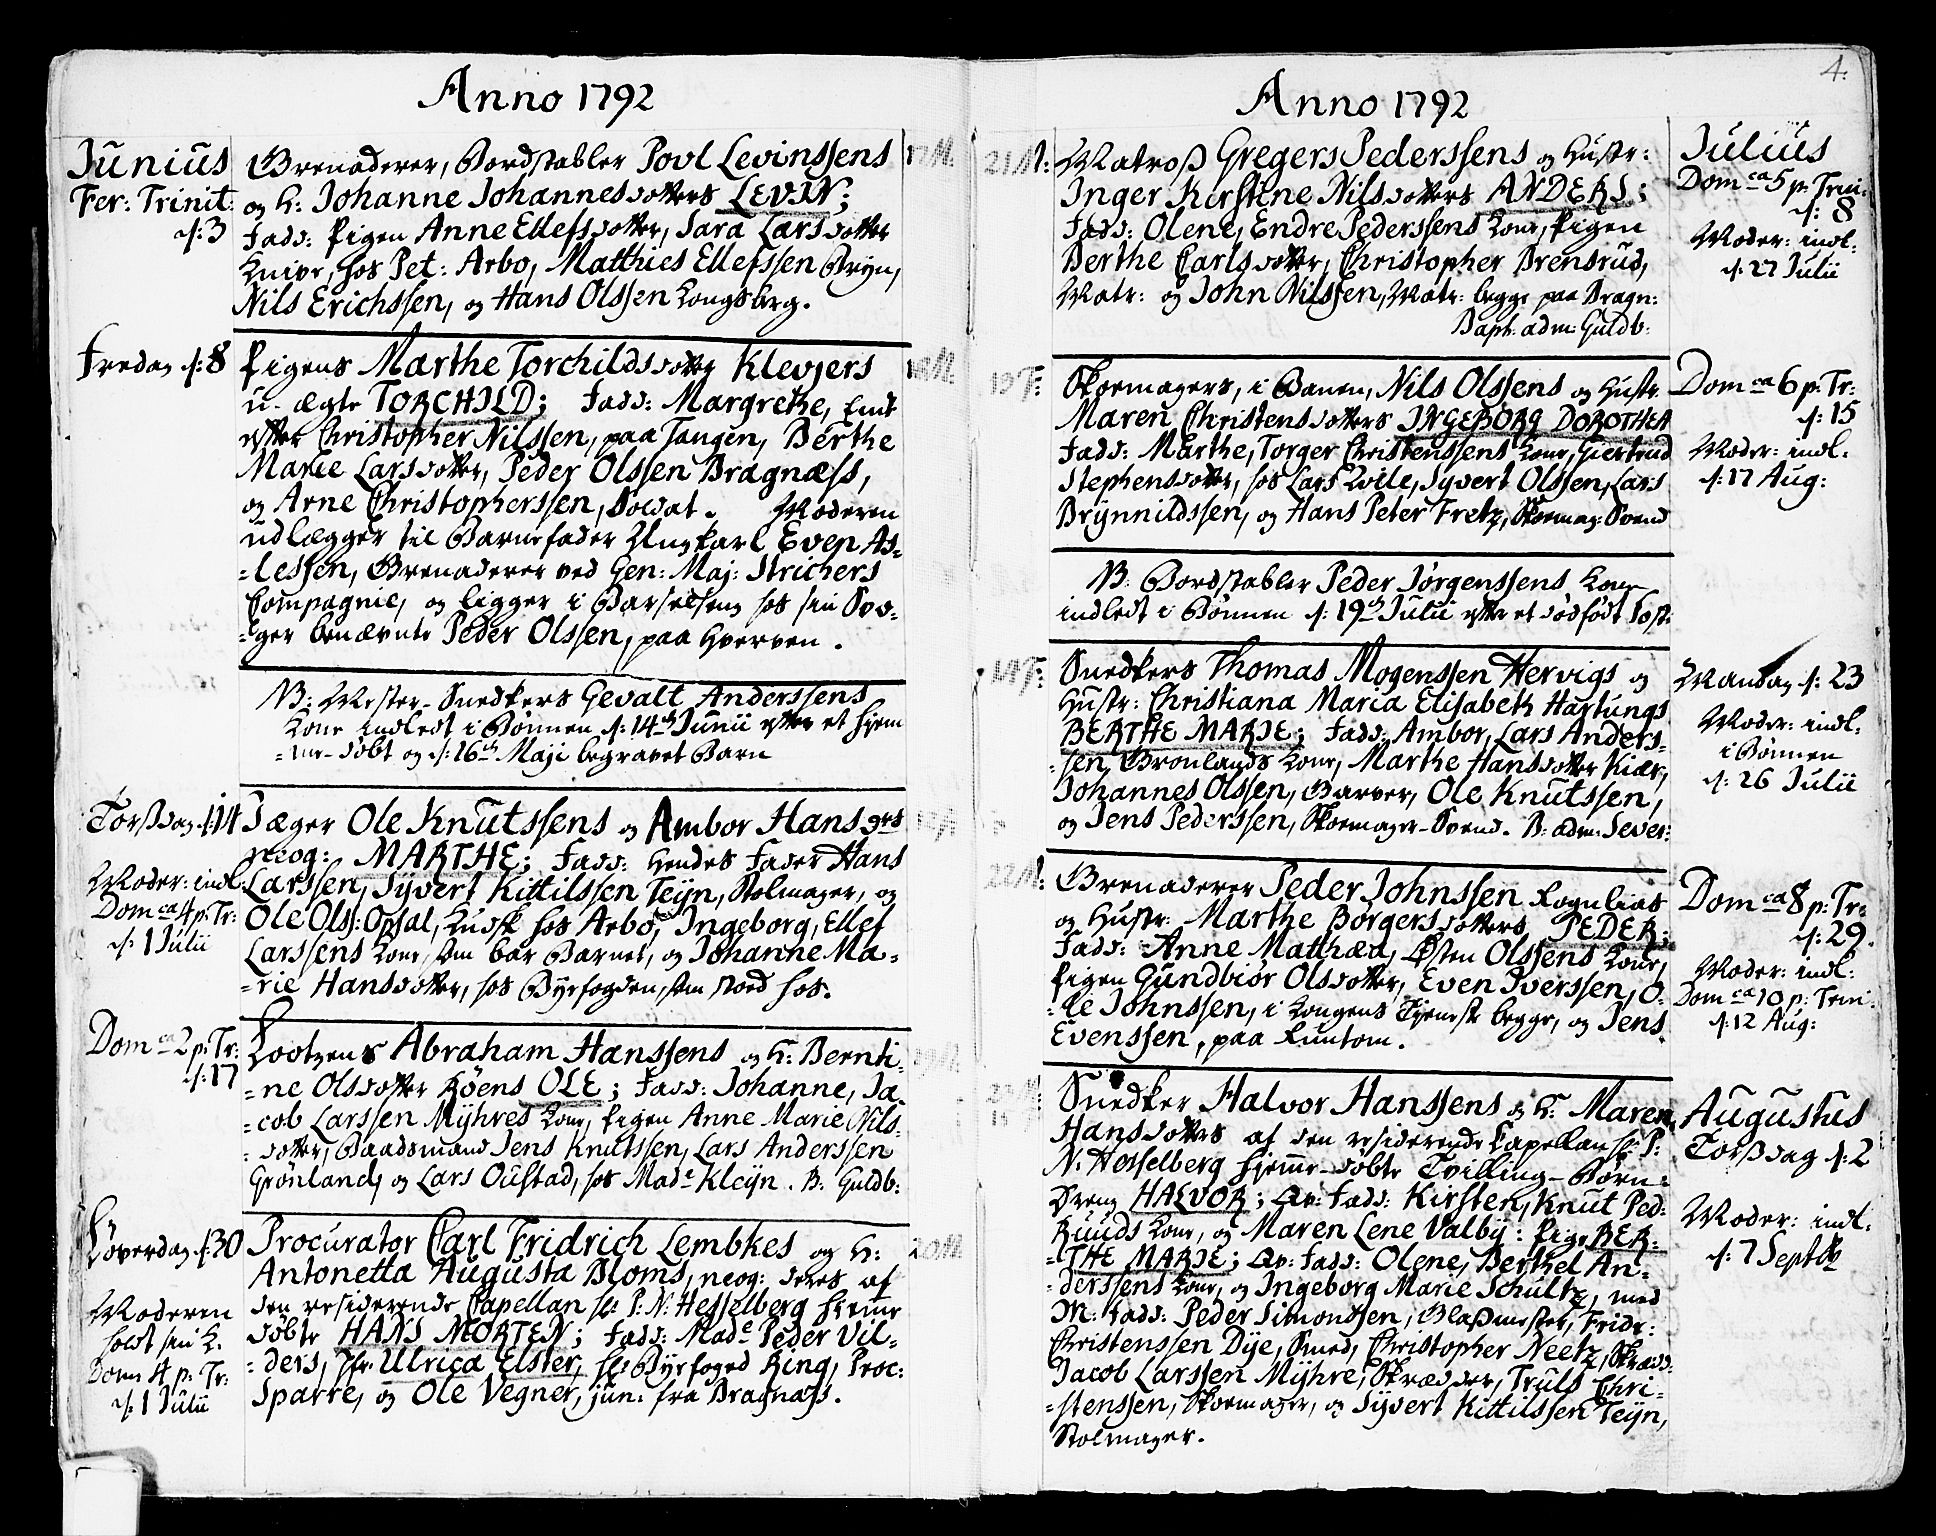 Anno 1792
Junius
Fer: Trinit:
d: 3
Grenaderer, Bordstabler Povl Levinssens
og H: Johanne Johannesdotters LEVIN;
Fadd: Pigen Anne Ellefsdotter, Sara Larsdotter
Knive, hos Pet: Arbo, Matthies Ellefssen Bryn,
Nils Erichssen, og Hans Olssen Kongsberg.
17 M.
Fredag d: 8
Pigens Marthe Torchildsdotter Klevjers
u-ægte TORCHILD; Fadd: Margrethe, Enke
efter Christopher Nilssen, paa Tangen, Berthe
Marie Larsdotter, Peder Olssen Bragnæss,
og Arne Christopherssen, Soldat. Moderen
udlægger til Barnefader Ungkarl Even As-
-lessen, Grenaderer ved Gen: Maj: Strichers
Compagnie, og ligger i Barselseng hos sin Svo-
-ger benævnte Peder Olssen, paa Hverven.
18 M.
NB: Mester-Snedkers Gevalt Anderssens
Kone indledt i Bønnen d: 14de Junii efter et hjem-
-me-døbt og d: 16de Maji begravet Barn
Torsdag d: 14
Moder: indl:
Domca 4 p: Tr:
d: 1 Julii
Jæger Ole Knutssens og Ambor Hansdrs
neog: MARTHE; Fadd: Hendes Fader Hans
Larssen, Syvert Kittilssen Teyn, Stolmager, og
Ole Ols: Opsal, Kudsk hos Arbo, Ingeborg, Ellef
Larssens Kone, som bar Barnet, og Johanne Ma-
-rie Hansdotter, hos Byefogden, som stood hos.
Domca 2 p: Tr:
d: 17
Lootzens Abraham Hanssens og H: Bernti-
-ne Olsdotter Røens OLE; Fadd: Johanne, Ja-
-cob Larssen Myhres Kone, Pigen Anne Marie Nils-
-dotter, Baadsmand Jens Knutssen, Lars Anderssen
Grønland, og Lars Oustad, hos Made Kleyn. B: Guldb:
Løverdag d: 30
Moderen
holdt sin K.
Dom 4 p: Tr:
d: 1 Julii
Procurator Carl Fridrich Lembkes og H:
Antonetta Augusta Bloms, neog: deres af
den residerende Capellan hr: P: N: Hesselberg hjemme
døbte HANS MORTEN; Fadd: Made Peder Vil-
-ders, Jfr: Ulrica Elster, hr: Byefoged Ring, Proc:
Sparre, og Ole Vegner, jun: fra Bragnæss.
20 M.
4.
Anno 1792
21 M:
Matros Gregers Pederssens og Hustr:
Inger Kirstine Nilsdotters ANDERS;
Fadd: Olene, Endre Pederssens Kone, Pigen
Berthe Carlsdotter, Christopher Brensrud,
Matr: og John Nilssen, Matr: begge paa Bragn:
Bapt: adm: Guldb:
Julius
Domca 5 p: Trin:
d: 8
Moder: indl:
d: 27 Julii
19 F:
Skoemagers, i Banen, Nils Olssens og Hustr
Maren Christensdotters INGEBORG DOROTHEA
Fadd: Marthe, Torger Christenssens Kone, Giertrud
Stephensdotter, hos Lars Hvile, Syvert Olssen, Lars
Brynnildssen, og Hans Peter Fretz, Skoemag: Svend
Domca 6 p: Tr:
d: 15
Moder: indl.
d: 17 Aug:
NB: Bordstabler Peder Jørgenssens Kone
indledt i Bønnen d: 19de Julii efter et dødfødt Fost:
18 F:
Snedkers Thomas Mogenssen Hervigs og
Hustr: Christiana Maria Elisabeth Hartungs
BERTHE MARIE; Fadd: Ambor, Lars Anders-
-sen Grønlands Kone, Marthe Hansdotter Kiær,
Johannes Olssen, Garver, Ole Knutssen,
og Jens Pederssen, Skoemager-Svend. B: adm: Sever:
Mandag d: 23
Moder: indl:
i Bønnen
d: 26 Julii
22 M:
Grenaderer Peder Johnssen Rognlias
og Hustr: Marthe Børgersdotters PEDER;
Fadd: Anne Mathæa, Østen Olssens Kone,
Pigen Gundbiør Olsdotter, Even Iverssen, O-
-le Johnssen, i Kongens Tjeneste begge, og Jens
Evenssen, paa Runtom.
Domca 8 p: Tr:
d: 29.
Moder: indl:
Domca 10 p: Trin:
d: 12 Aug:
Snedker Halvor Hanssens og H: Maren
Hansdotters af den residerende Capellan hr: P:
N: Hesselberg hjemme-døbte Tvilling-Børn:
Dreng HALVOR; Qv: Fadd: Kirsten, Knut Ped:
Ruuds Kone, og Maren Lene Valby: Pige BER-
-THE MARIE; Qv: Fadd: Olene, Berthel An-
-derssens Kone, og Ingeborg Marie Schultz, med
M: Fadd: Peder Simonssen, Glasmester, Fridr:
Christenssen Dye, Smed, Christopher Neetz, Skrædd:
Jacob Larssen Myhre, Skrædder, Truls Chri-
-stenssen, Skoemager, og Syvert Kittilssen Teyn,
Stolmager.
Augustus
Torsdag d: 2
Moder: indl:
d: 7 Septbr